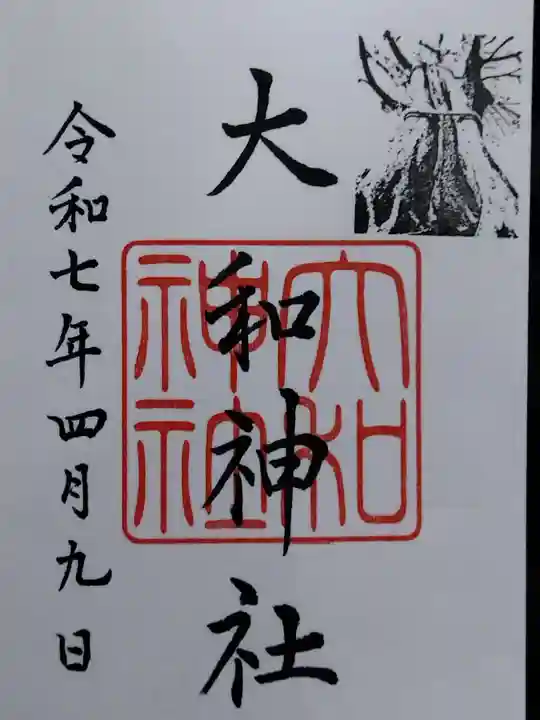 大和神社
大和
神社
令和七年四月九日